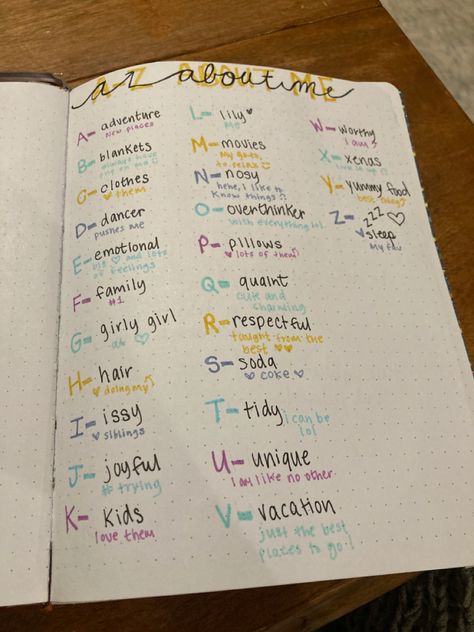 A-Z ABOUT ME
A- adventure
New places
B- blankets
always have
one on me
C- clothes
♡ them
D- dancer
pushes me
E- emotional
big ♡ and lots
of feelings
F- family
#1
G- girly girl
♡
H- hair
♡ doing my
I- issy
♡ siblings
J- joyful
trying
K- Kids
love them
L- lily ♥
me
M- movies
My go to,
to relax
N- nosy
hehe, i like to
know things
O- overthinker
with everything lol
P- pillows
♥ lots of them
Q- quaint
cute and
charming
R- respectful
taught from the
best ♥♥
S- soda
♥ coke ♥
T- tidy i can be
lol
U- unique
I am like no other.
V- vacation
just the best
places to go!
W- worthy
I am
X- xenas
Y- yummy food
best thing
Z- zzz ♡
sleep
My fav